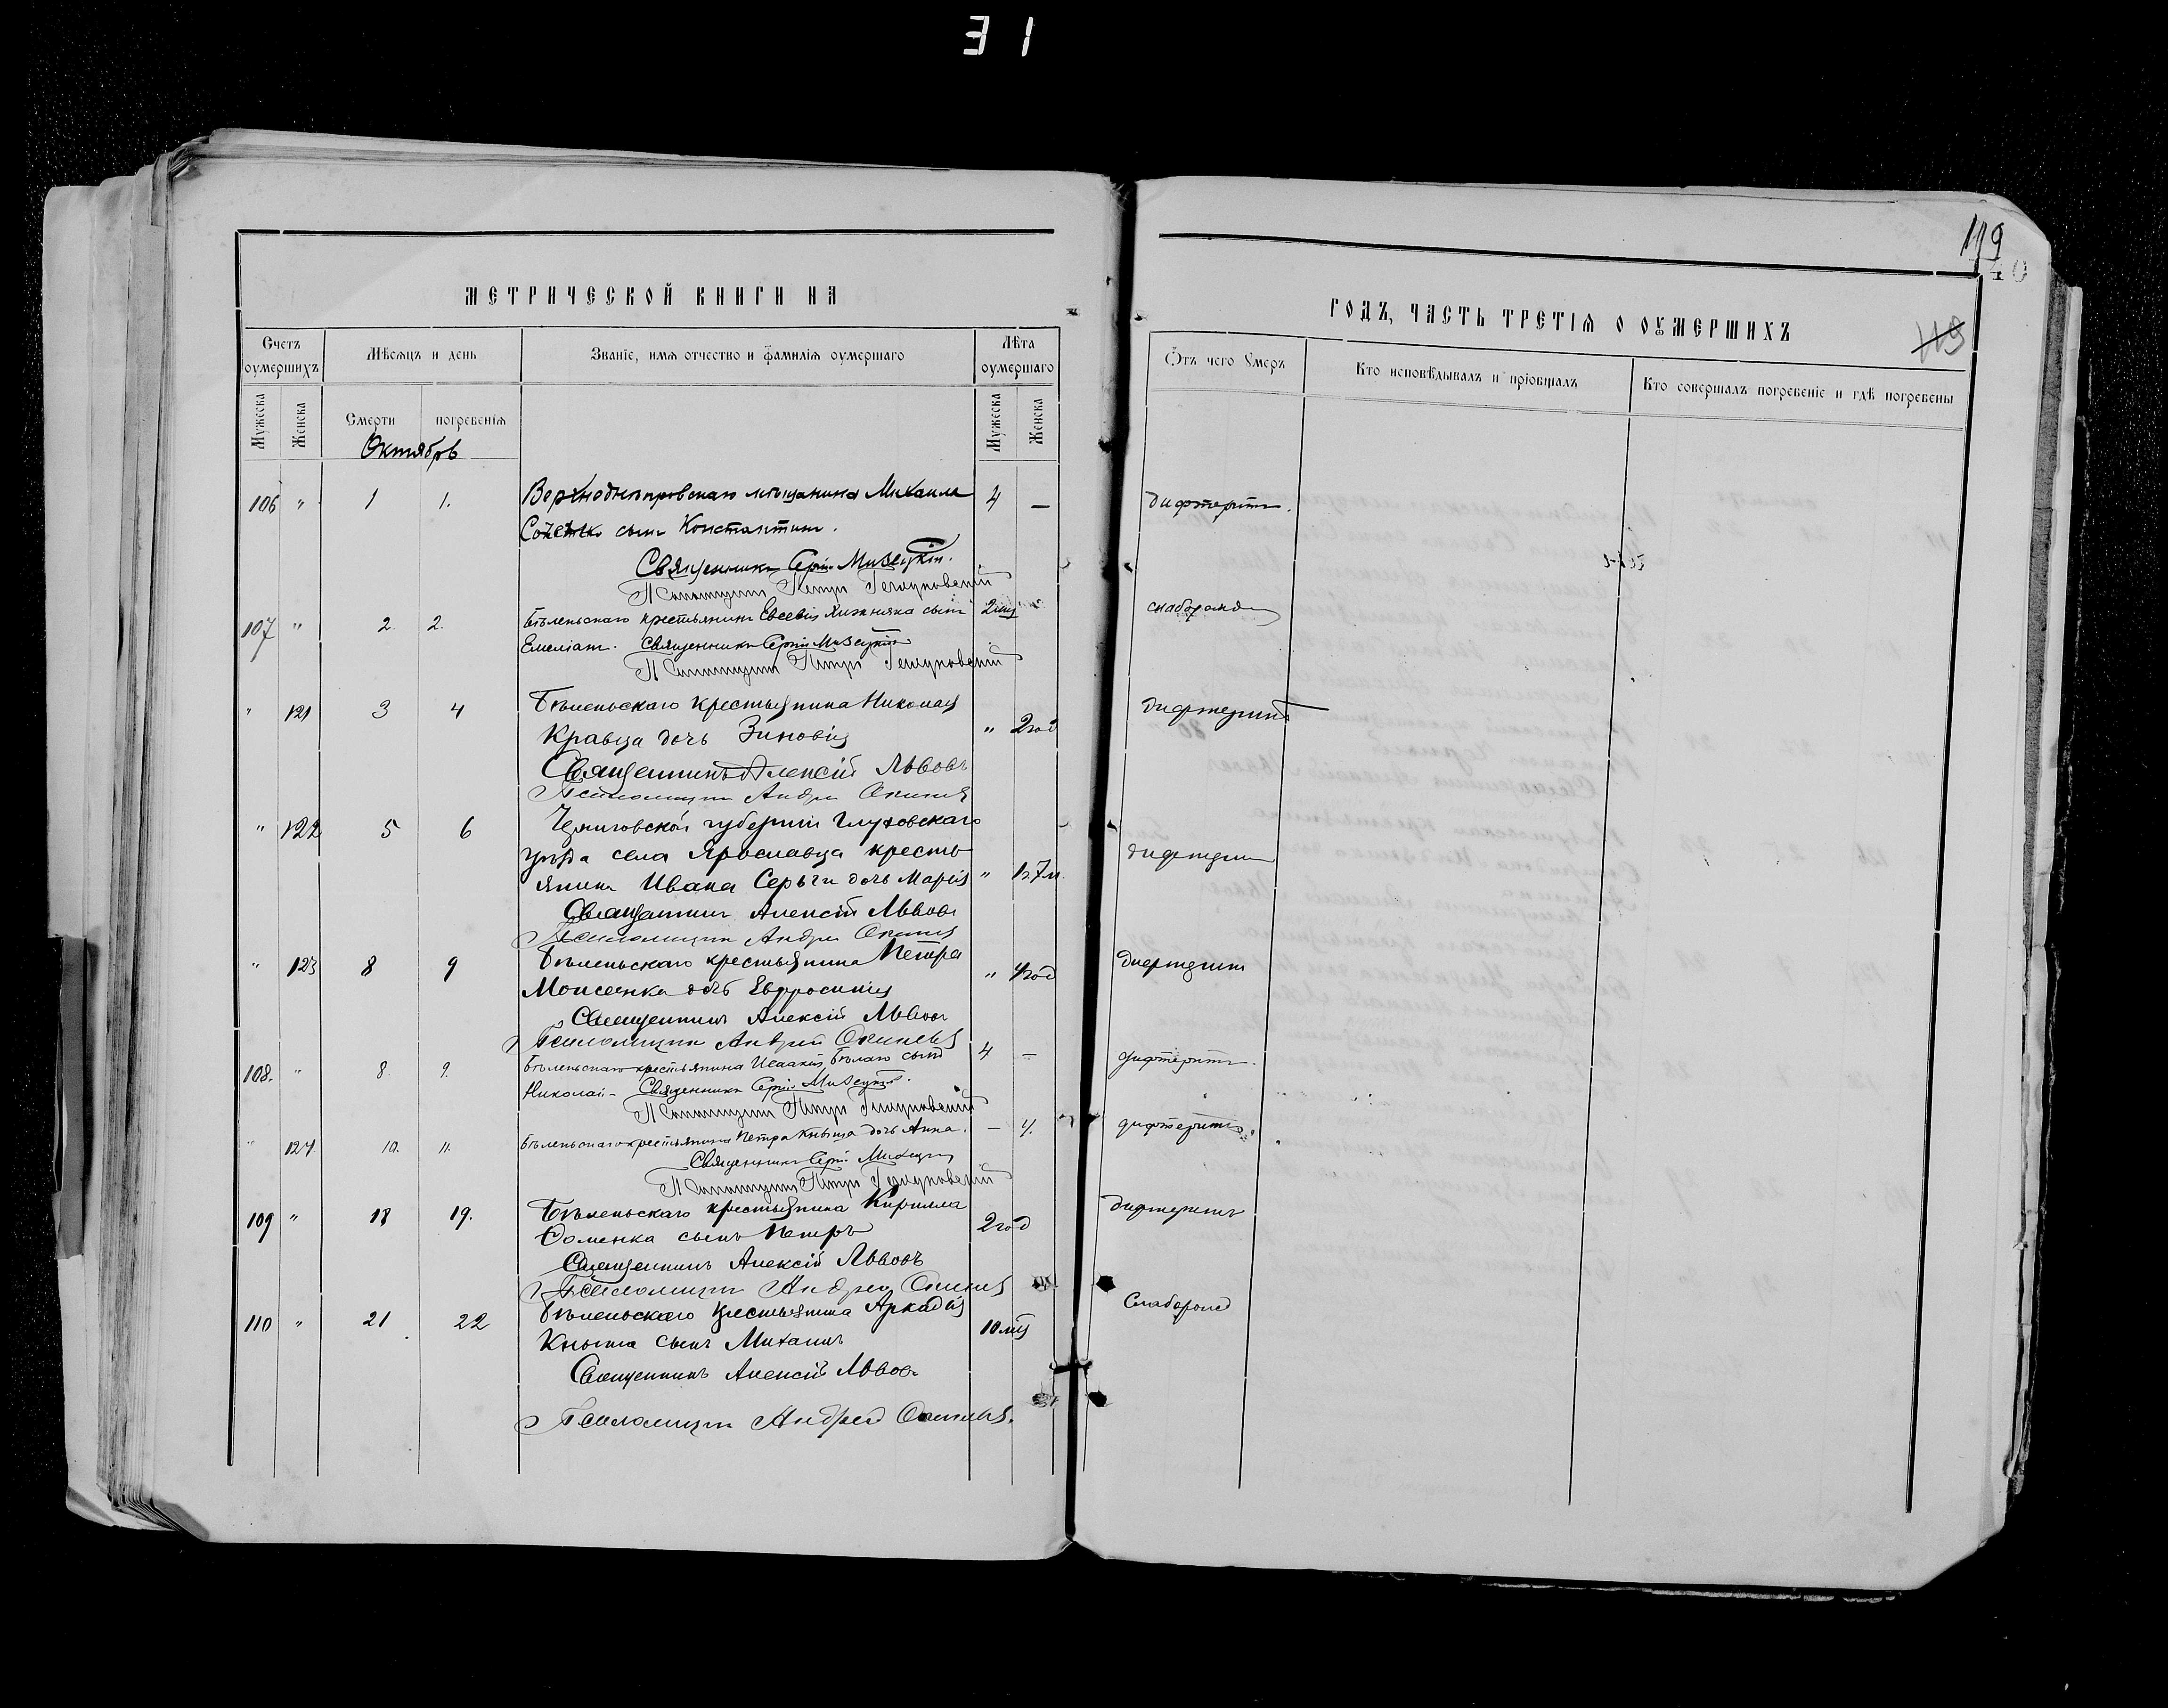 31
119
40
119
МЕТРИЧЕСКОЙ КНИГИ НА
ГОДЪ, ЧАСТЬ ТРЕТІЯ О ОУМЕРШИХЪ
Счетъ оумершихъ
Мѣсяцъ и день
Званіе, имя отчество и фамилія оумершаго
Лѣта оумершаго
Отъ чего Умеръ
Кто исповѣдывалъ и пріобщалъ
Кто совершалъ погребеніе и гдѣ погребены
Мужеска Женска Смерти погребенія Мужеска Женска
Октябрь
106 " 1 1. Верхнеднѣпровскаго мѣщанина Михаила 4 — дифтеритъ.
сынъ Константинъ.
Священникъ Сергій Мизецкій.
Псаломщикъ Петръ
107 " 2. 2. Бѣленьскаго крестьянина Евсевія Хижняка сынъ 2 мц " слаборожд
Емеліанъ. Священникъ Сергій Мизецкій
Псаломщикъ Петръ
" 121 3 4 Бѣленьскаго крестьянина Николая дифтеритъ
Кравца дочь Зиновія " 2 год
Священникъ Алексій Львовъ
Псаломщикъ Андрей
" 122 5 6 Черниговской губерніи Глуховскаго
уѣзда села Ярославца кресть дифтерит
янина Ивана Серьги дочь Марія "
Священникъ Алексій Львовъ
Псаломщикъ Андрей
" 123 8 9 Бѣленьскаго крестьянина Петра " 4 год дифтерит
Моисеенка дочь Евфросинія
Священникъ Алексій Львовъ
Псаломщикъ Андрей
108. " 8. 9. Бѣленьскаго крестьянина Исаакія Бѣлаго сынъ 4 — дифтеритъ.
Николай - Священникъ Сергій Мизецкій.
Псаломщикъ Петръ
" 124 10. 11. Бѣленьскаго крестьянина Петра Кныша дочь Анна. — 4. дифтеритъ
Священникъ Сергій Мизецкій
Псаломщикъ Петръ
109 " 18 19. Бѣленьскаго крестьянина Кирилла дифтеритъ
сынъ Петръ 2 год
Священникъ Алексій Львовъ
Псаломщикъ Андрей
110 " 21 22 Бѣленьскаго крестьянина Аркадія 10 мц Слаборожд
Кныша сынъ Михаилъ
Священникъ Алексій Львовъ
Псаломщикъ Андрей